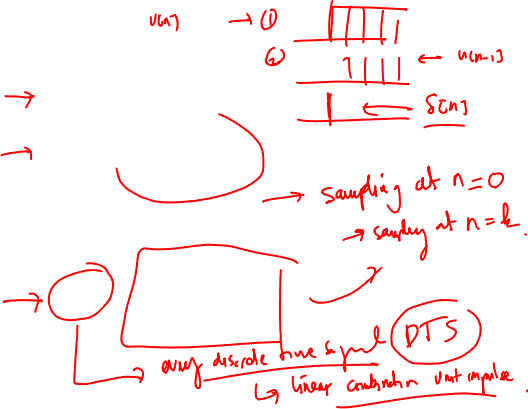 u[n] → ①
② ← u[n-1]
← δ[n]
→ sampling at n=0
→ sampling at n=k.
every discrete time signal DTS
↳ linear combination unit impulse.